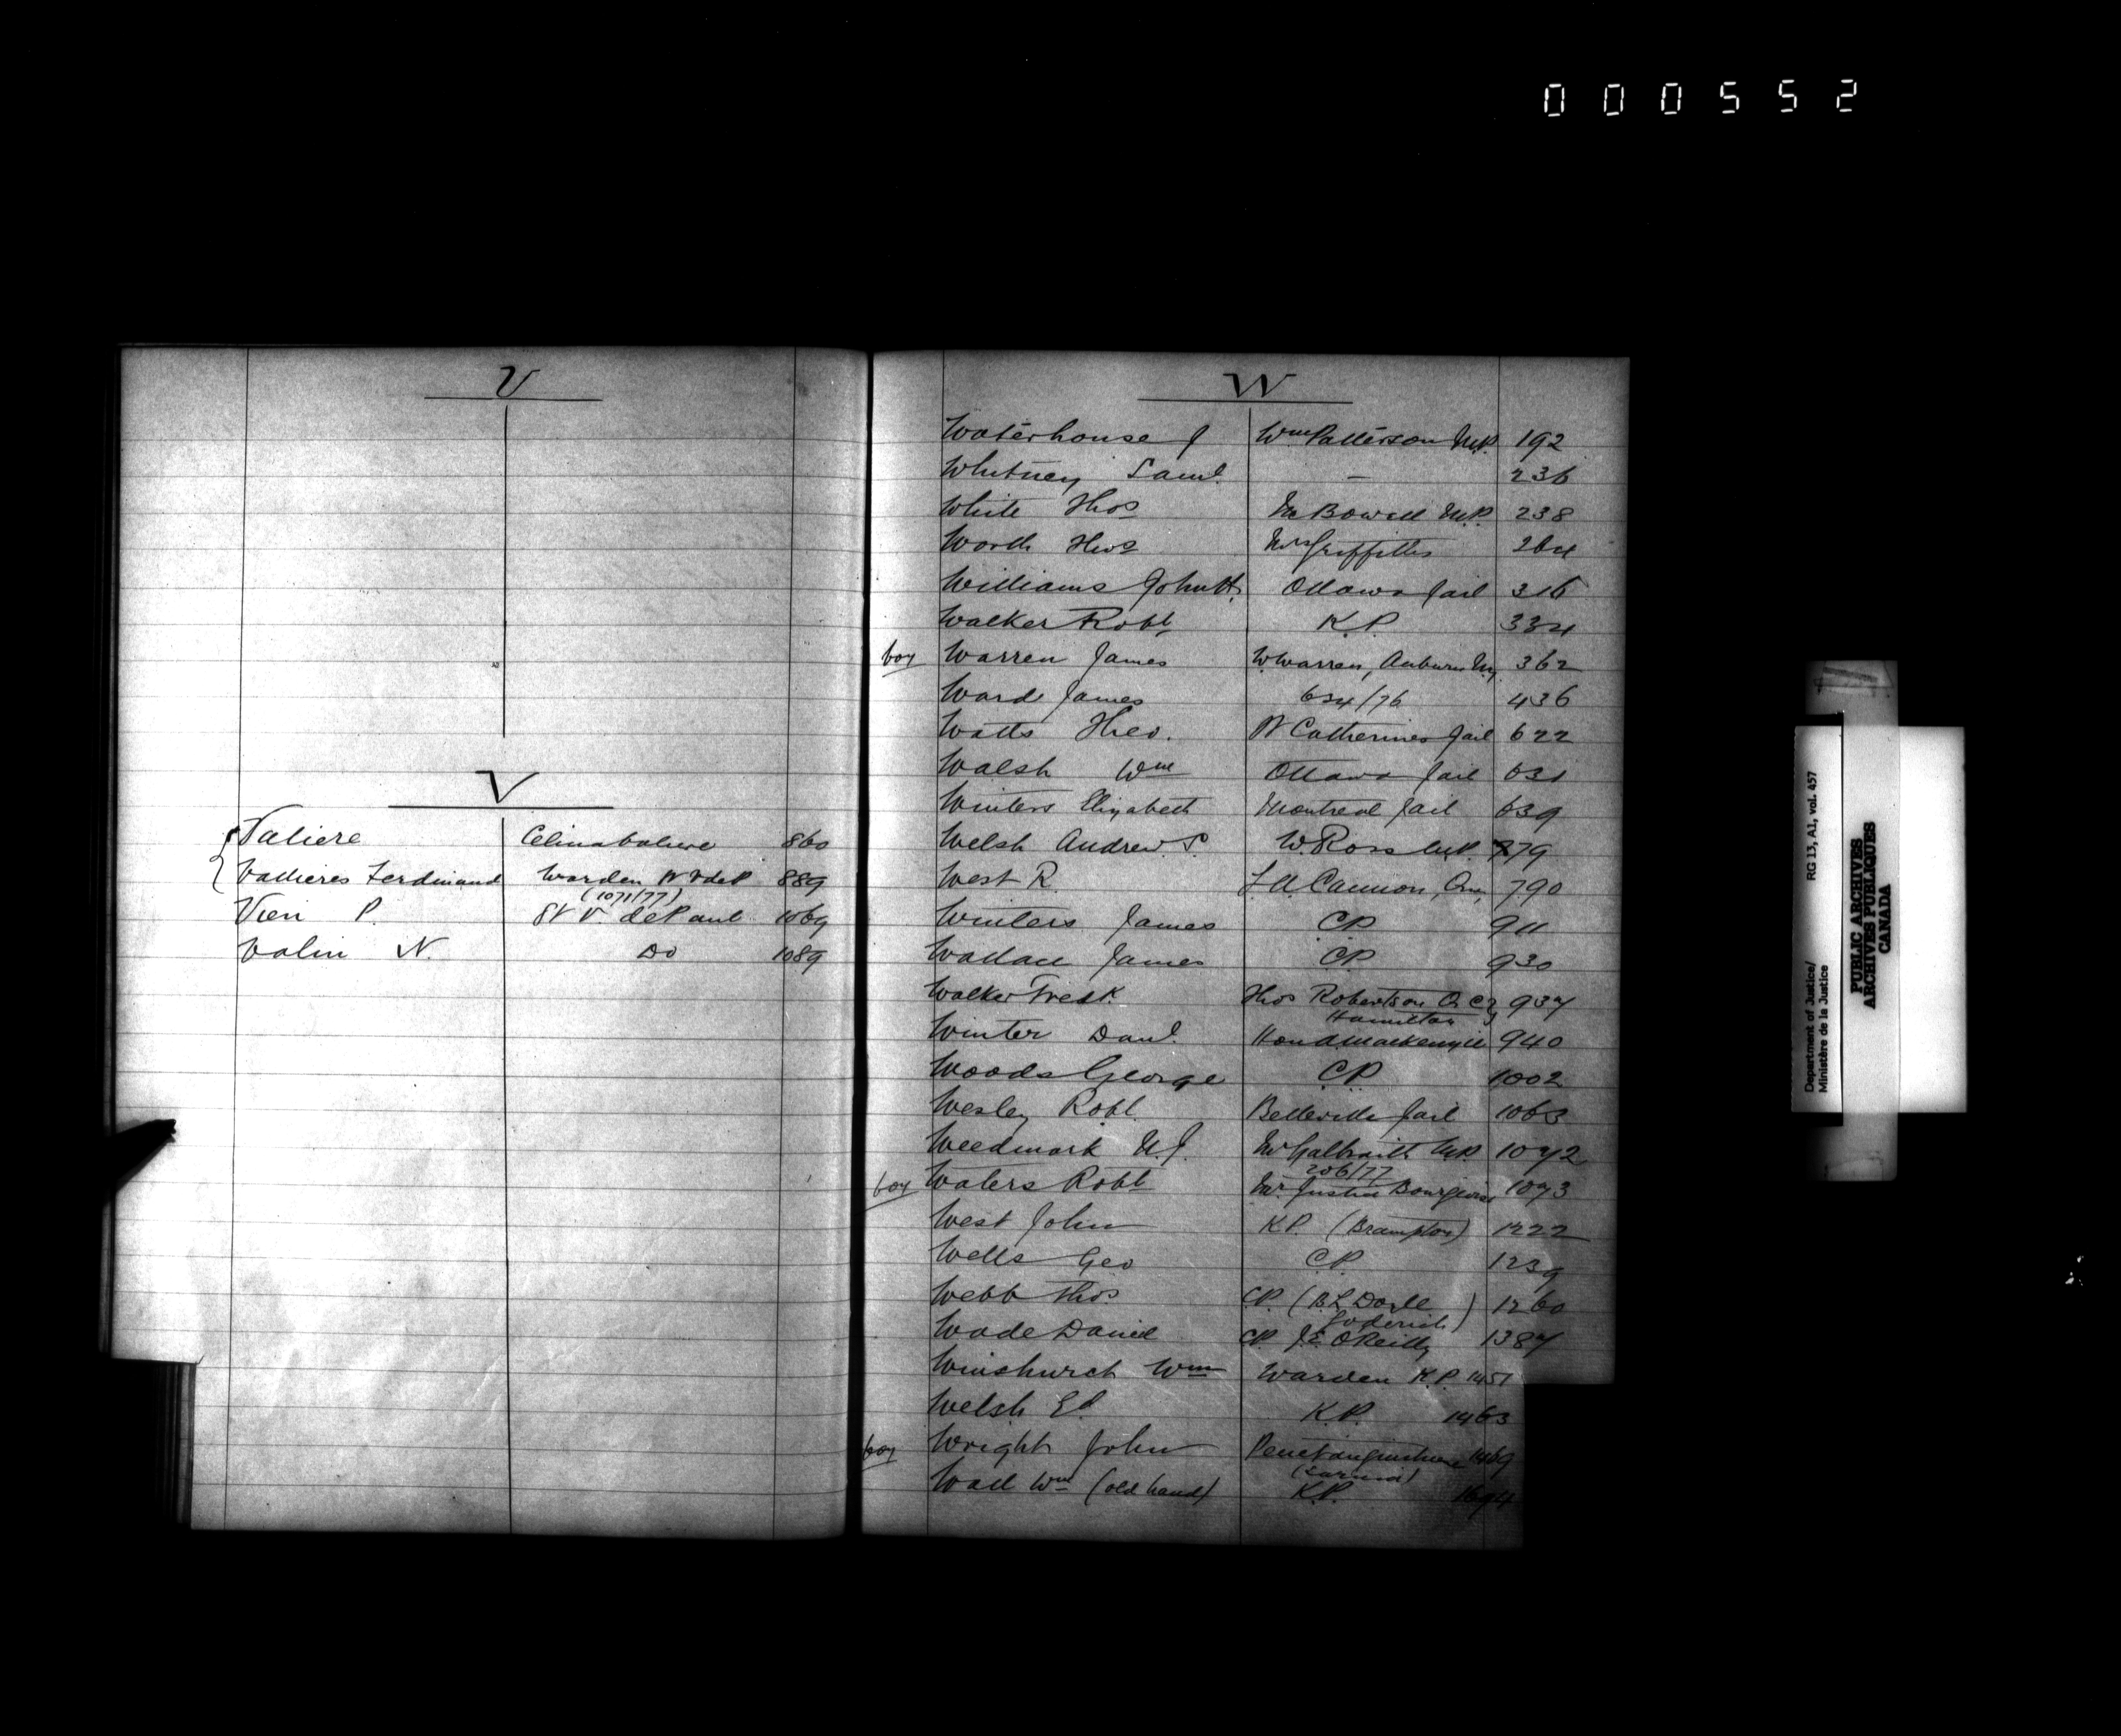 000552
U
V
Valiere Celina Valiere 860
Vallieres Ferdinand Warden St V de P 889
(1071/77)
Vien P. St V. de Paul 1069
Valin N. Do 1089
W
Waterhouse J Wm Patterson M.P. 192
Whitney Saml. — 236
White Thos Mc Bowell M.P. 238
Worth Thos Mrs Griffiths 264
Williams John H. Ottawa Jail 316
Walker Robt K.P. 334
boy Warren James W. Warren, Auburn N.Y. 362
Ward James 634/76 436
Watts Theo. St Catherines Jail 622
Walsh Wm Ottawa Jail 631
Winters Elizabeth Montreal Jail 639
Welsh Andrew S. W. Ross M.P. 779
West R. L.A. Cannon, Que, 790
Winters James C.P. 911
Wallace James C.P. 930
Walker Fredk. Thos Robertson Q.C. 937
Hamilton
Winter Danl. Hon A Mackenzie 940
Woods George C.P. 1002
Wesley Robt. Belleville Jail 1063
Weedmark N.J. Mr Galbraith M.P. 1072
206/77
boy Waters Robt Mr. Justice Bourgeois 1073
West John K.P. (Brampton) 1222
Wells Geo C.P. 1239
Webb Thos C.P. (B.L. Doyle 1260
Goderich)
Wade Daniel C.P. J.E. O'Reilly 1387
Winchurch Wm Warden K.P. 1451
Welsh Ed. K.P. 1463
boy Wright John Penetanguishene 1469
(Sarnia)
Wall Wm (old hand) K.P. 1694
Department of Justice/ RG 13, A1, vol. 457
Ministère de la Justice
PUBLIC ARCHIVES
ARCHIVES PUBLIQUES
CANADA